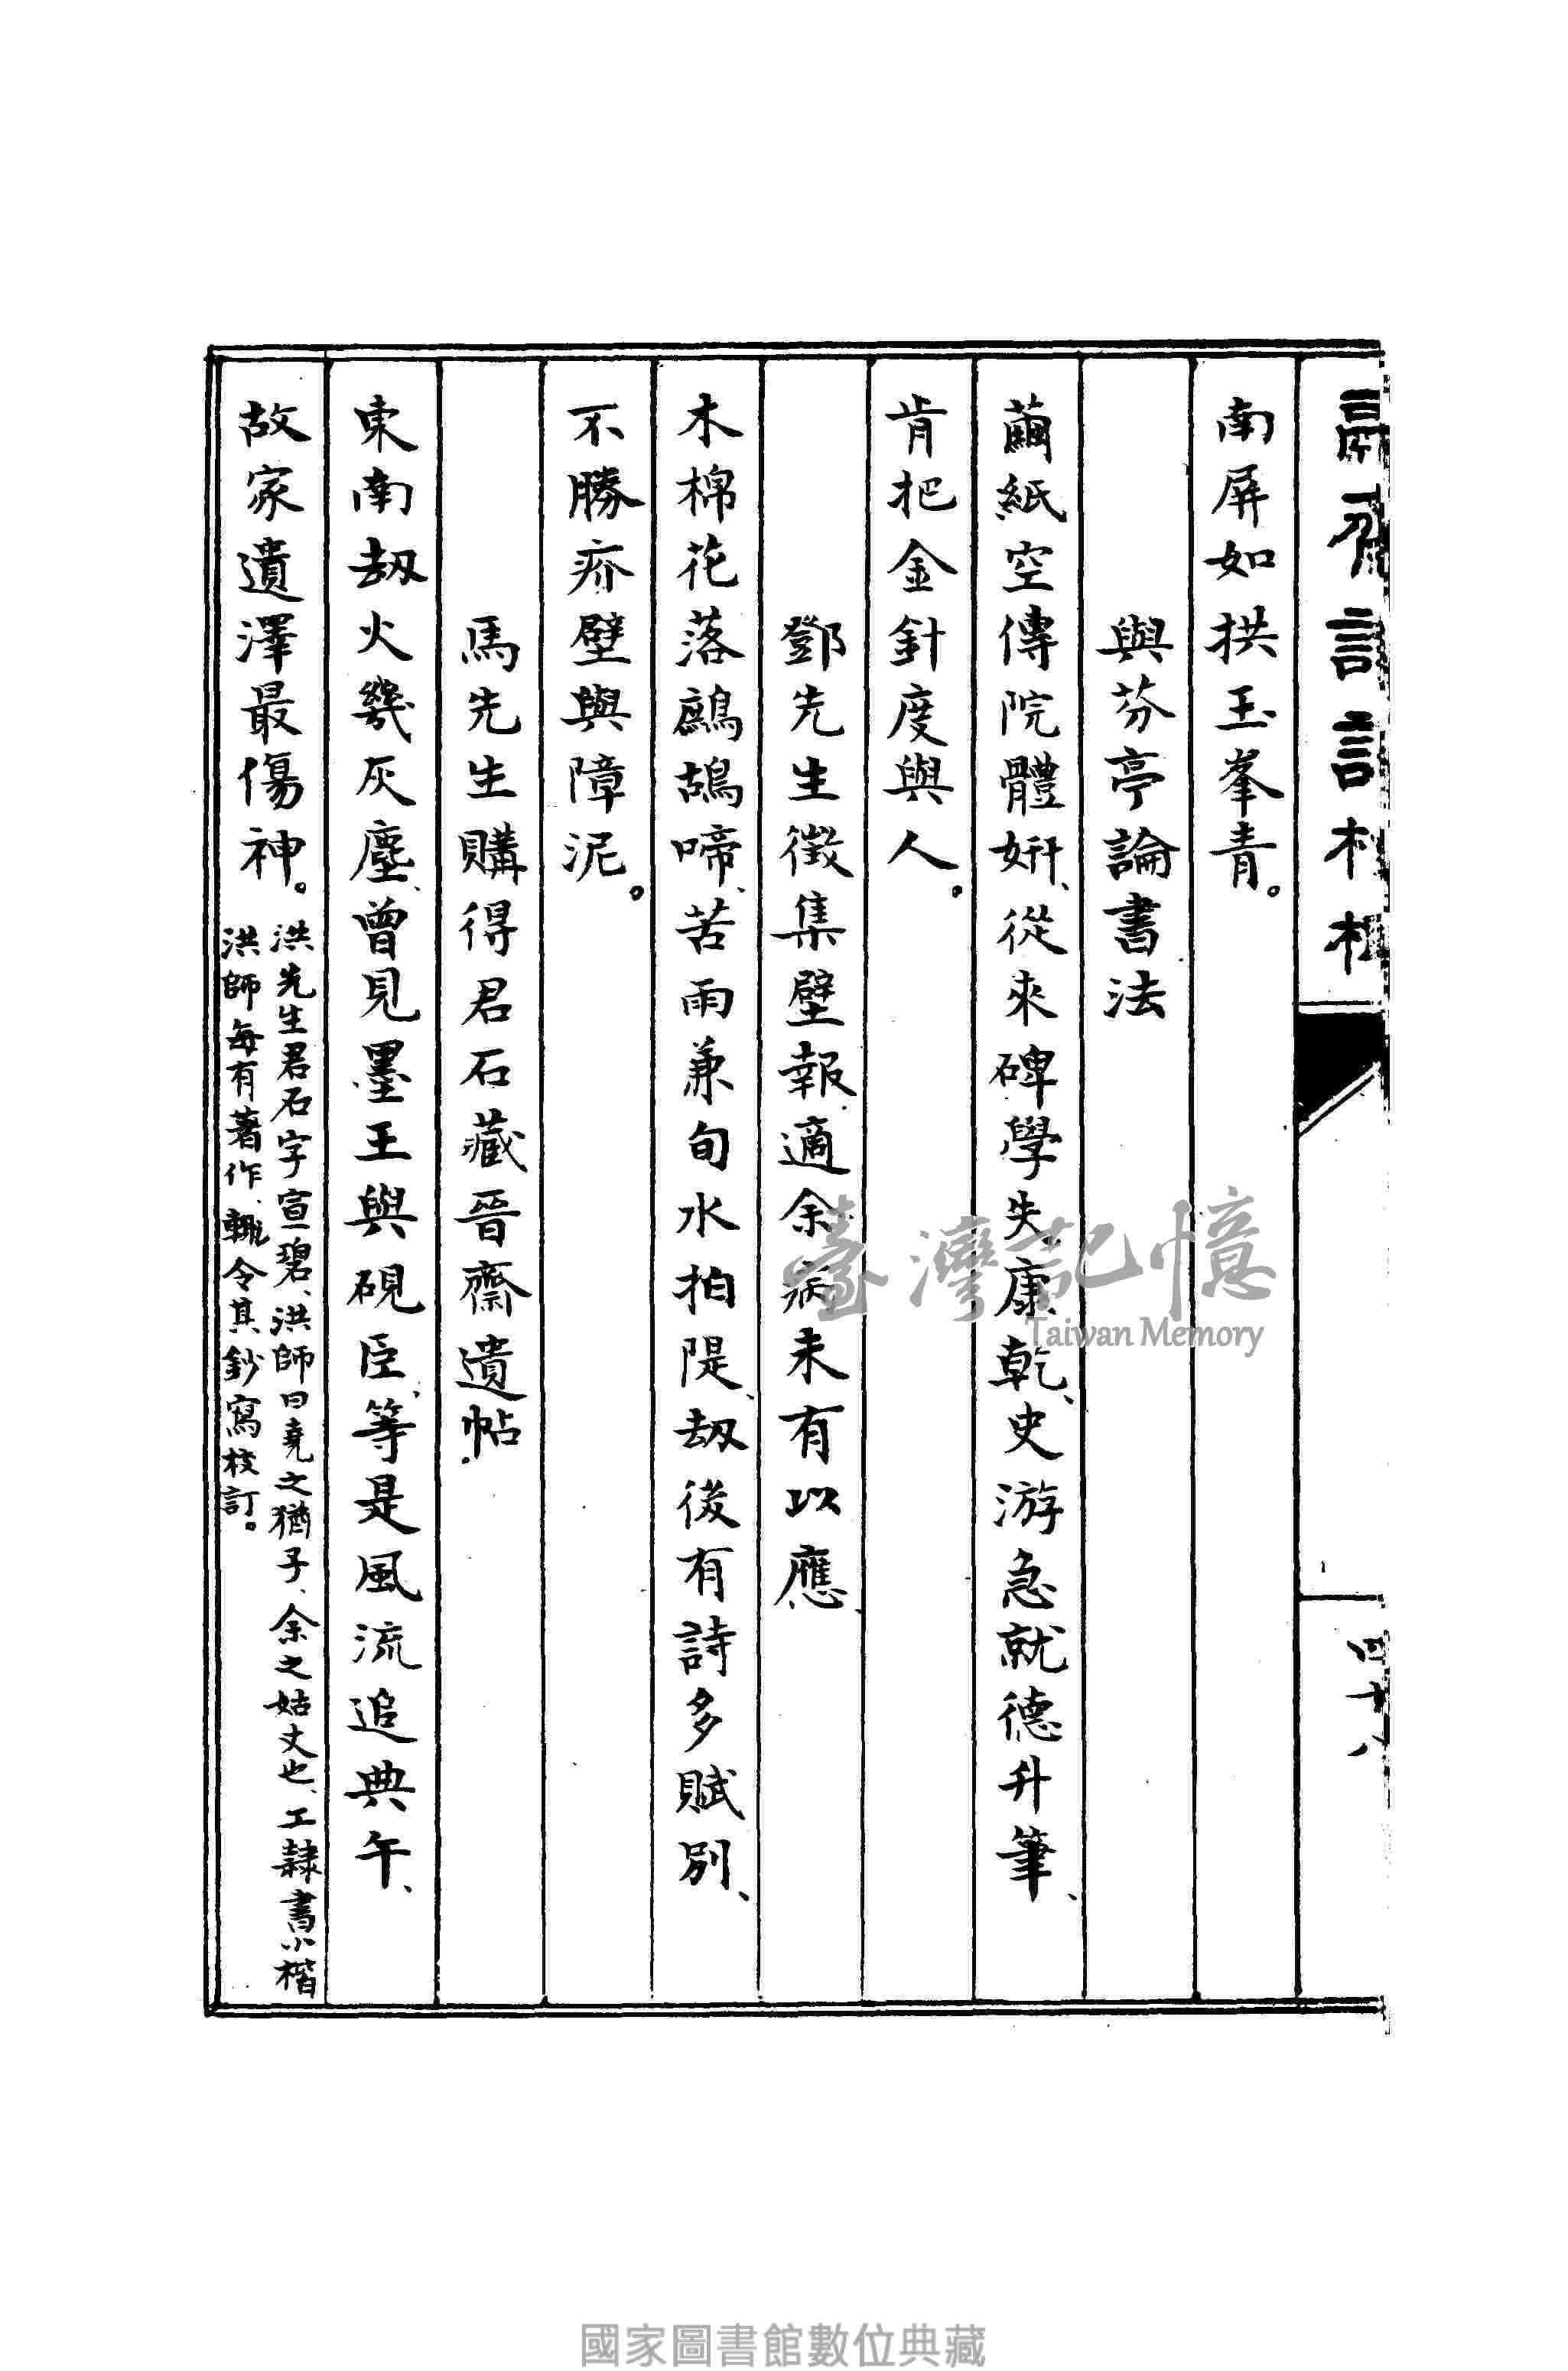 南屏如拱玉峯青。
與芬亭論書法
繭紙空傳院體妍、從來碑學失康乾、史游急就德升筆、
肯把金針度與人。
鄧先生徵集壁報適余病未有以應、
木棉花落鷓鴣啼、苦雨兼旬水拍隄、劫後有詩多賦別、
不勝疥壁與障泥。
馬先生購得君石藏晉齋遺帖、
東南劫火幾灰塵、曾見墨王與硯臣、等是風流追典午、
故家遺澤最傷神。
洪先生君石字宣碧、洪師曰堯之猶子、余之姑丈也、工隸書小楷
洪師每有著作、輒令其鈔寫校訂。
四十八
臺灣記憶
Taiwan Memory
國家圖書館數位典藏